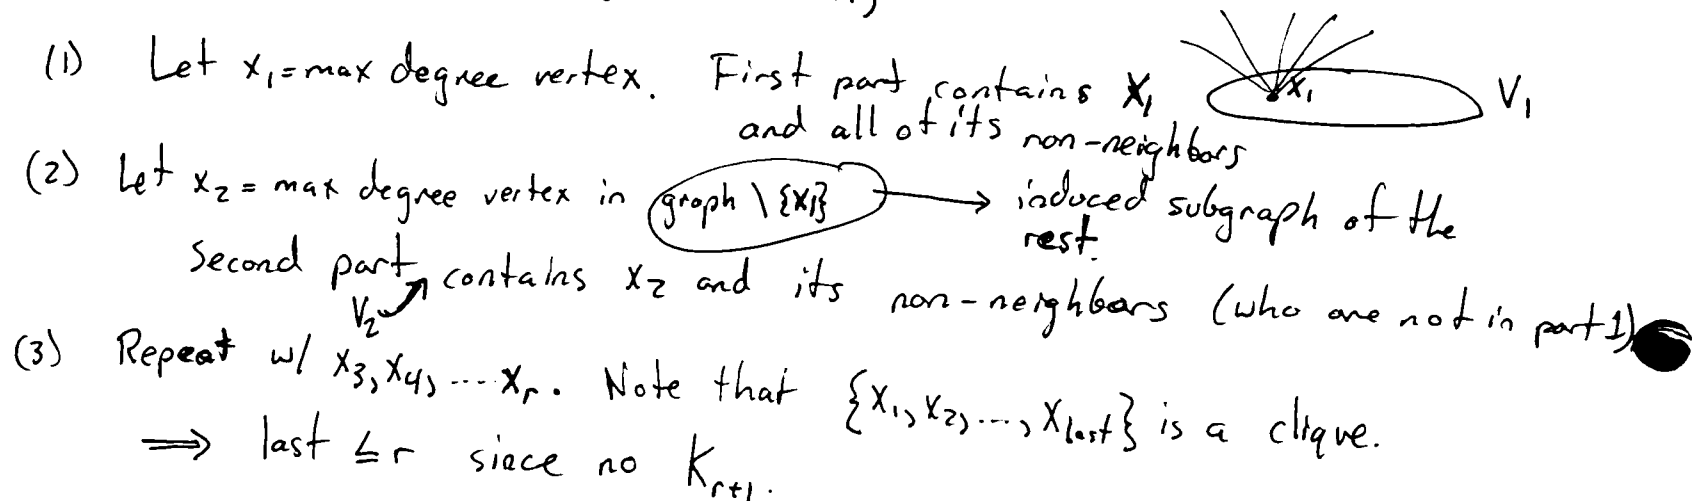 (1) Let x₁ = max degree vertex. First part contains x₁
and all of its non-neighbors
x₁ V₁
(2) Let x₂ = max degree vertex in graph \ {x₁} → induced subgraph of the
rest.
Second part contains x₂ and its non-neighbors (who are not in part 1)
V₂
(3) Repeat w/ x₃, x₄, ....xᵣ. Note that {x₁, x₂, ..., x_last} is a clique.
⟹ last ≤ r since no Kᵣ₊₁.